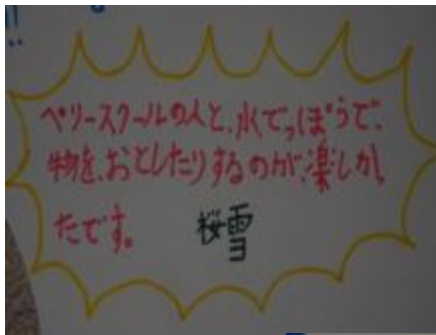 ペリースクールの人と、水でっぽうで、
物を、おとしたりするのが、楽しかっ
たです。 桜雪